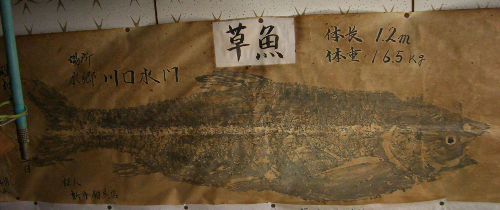 草魚
体長 1.2m
体重 16.5Kg
場所
水郷 川口水門